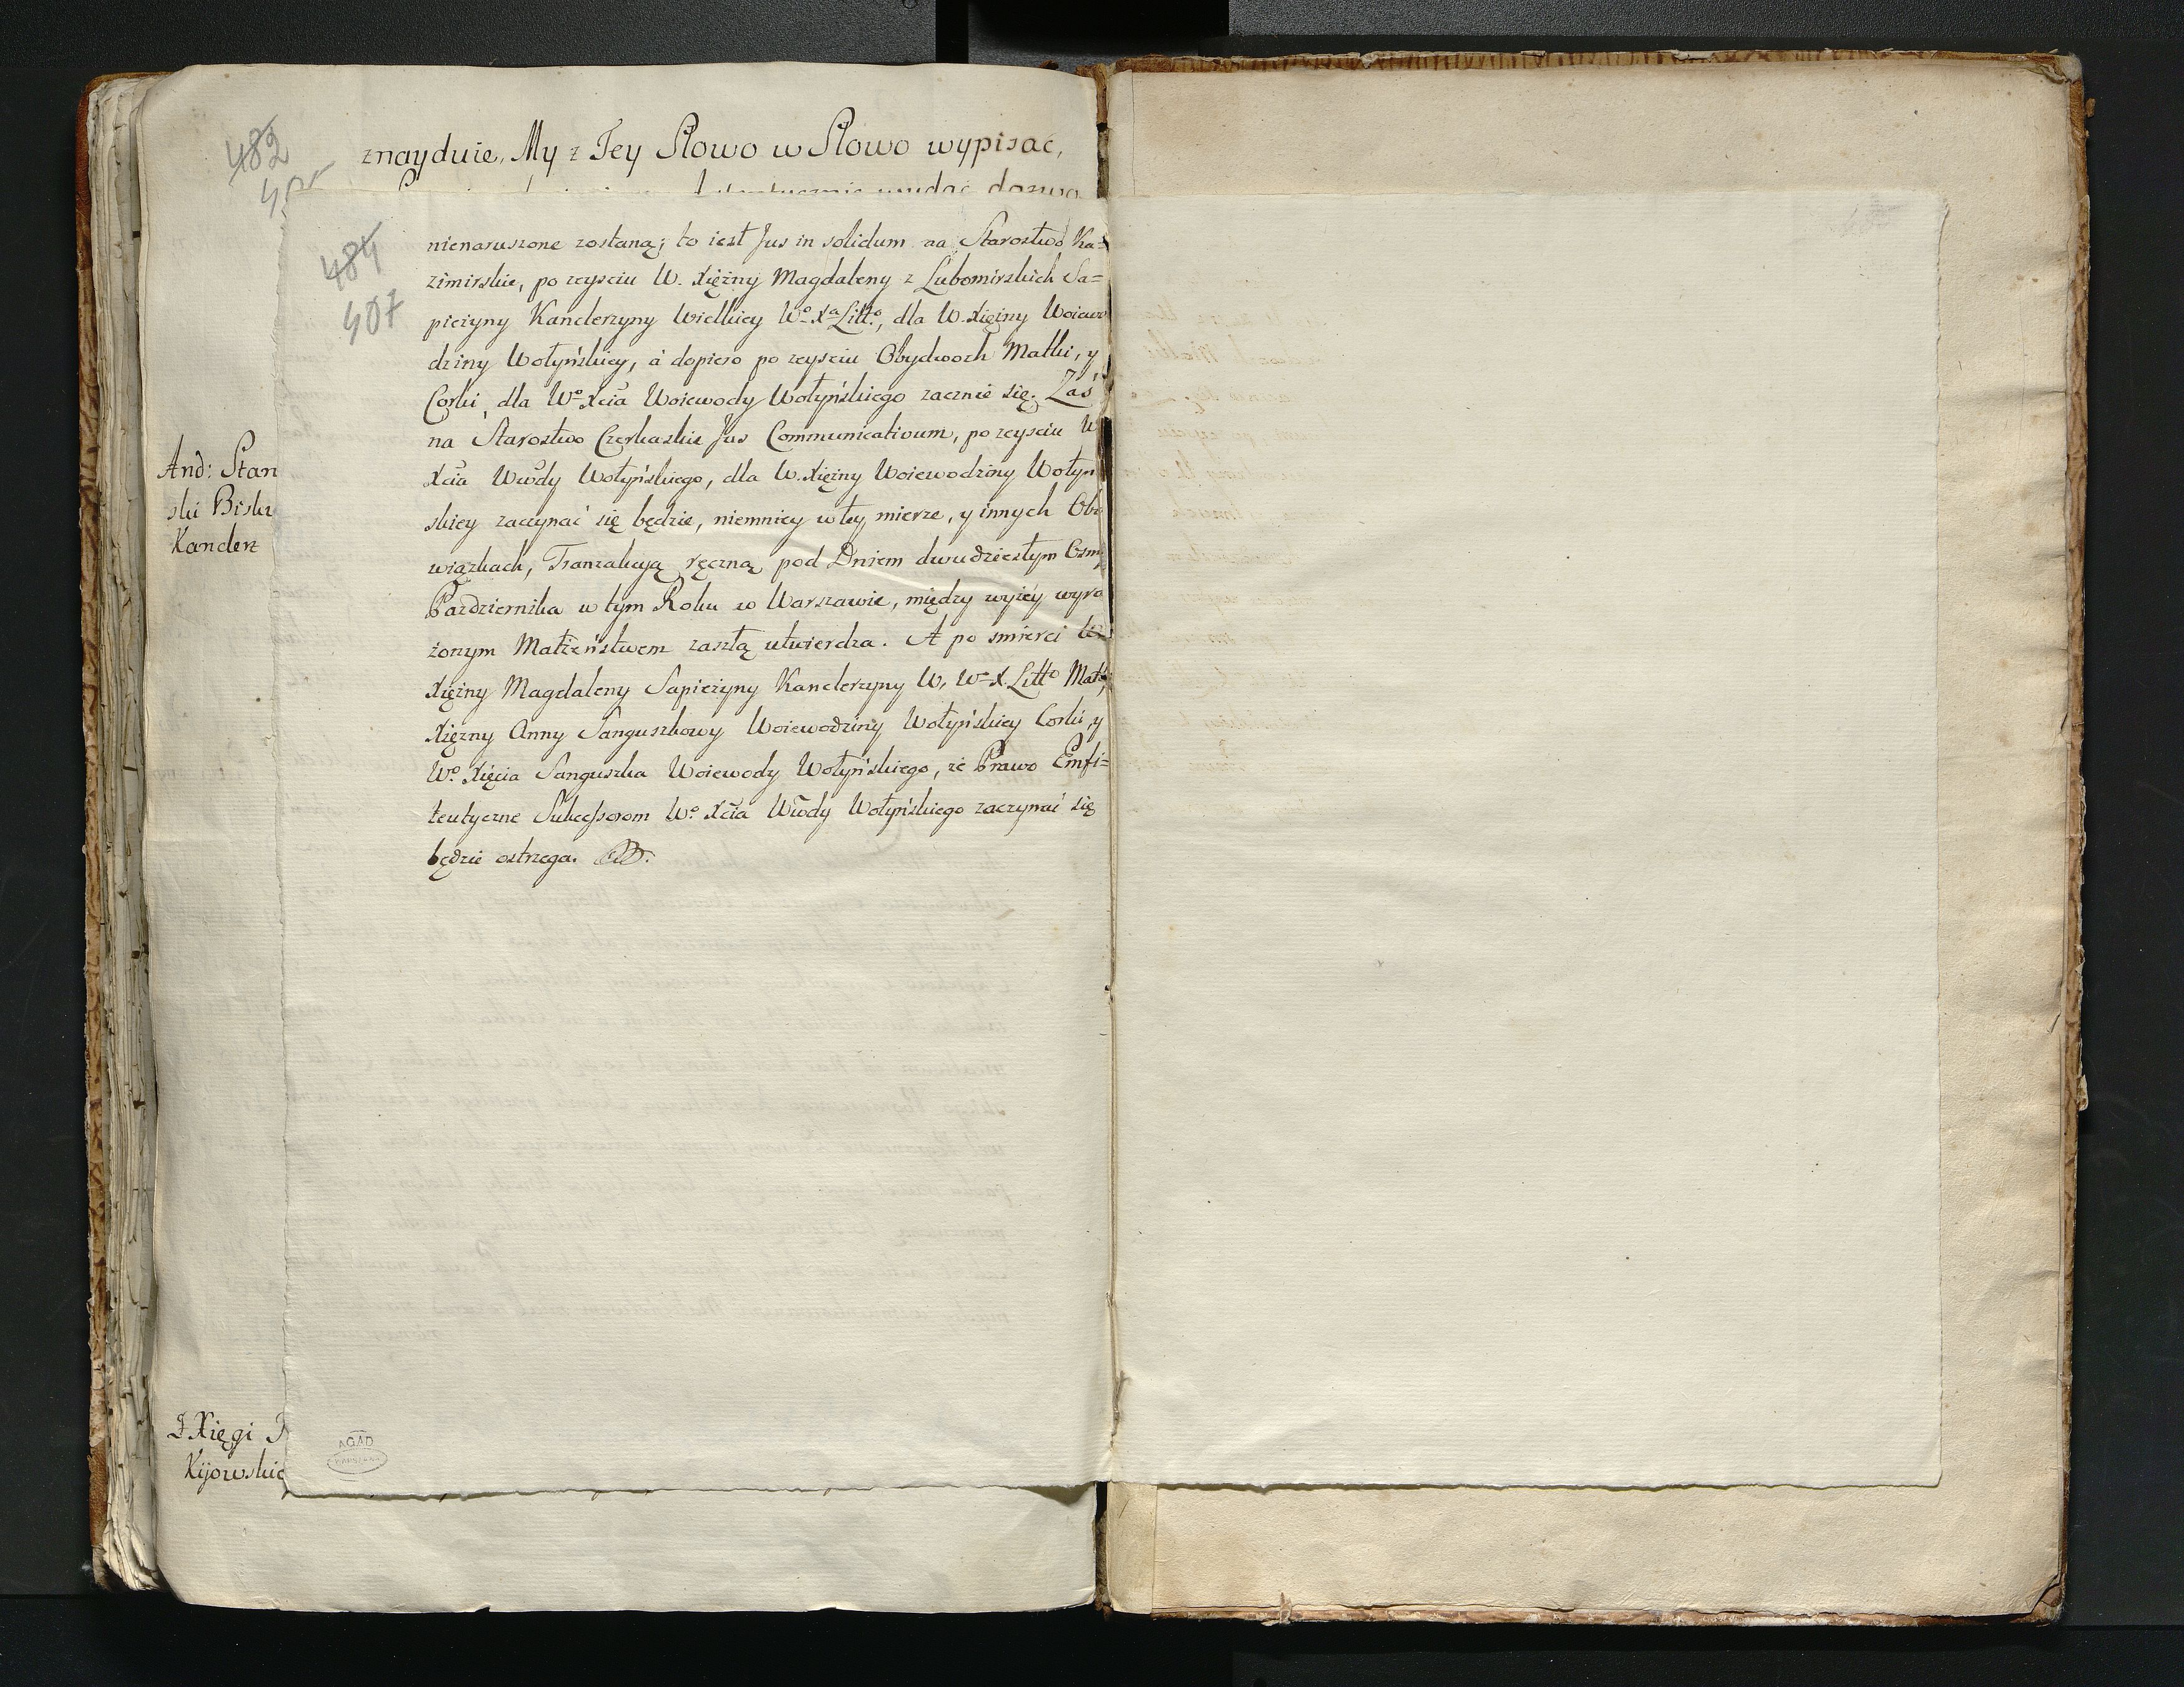 482
znayduie, My z Jey Słowo w Słowo wypisać,
484
407
nienaruszone zostaną; to iest Jus in solidum na Starostwo Ka=
zimirskie, po zeysciu W. Xiężny Magdaleny z Lubomirskich Sa=
pieżyny Kanclerzyny Wielkiey Wo Xa Litto, dla W. Xiężny Woiewo
dziny Wołyńskiey, á dopiero po zeysciu Obydwoch Matki, y
Corki, dla Wo Xcia Woiewody Wołyńskiego zacznie się. Zaś
na Starostwo Czerkaskie Jus Communicativum, po zeysciu W
Xcia Wwdy Wołyńskiego, dla W. Xiężny Woiewodziny Wołyn
skiey zaczynać się będzie, niemniey w tey mierze, y innych Obo
wiązkach, Tranzakcyą ręczną pod Dniem dwudziestym Osm
Pazdziernika w tym Roku w Warszawie, między wyżey wyra
żonym Małżeństwem zaszłą utwierdza. A po smierci
Xiężny Magdaleny Sapieżyny Kanclerzyny W. Wo X. Litto Matki,
Xiężny Anny Sanguszkowy Woiewodziny Wołyńskiey Corki, y
Wo Xięcia Sanguszka Woiewody Wołyńskiego, że Prawo Emfi=
teutyczne Sukcessorom Wo Xcia Wwdy Wołyńskiego zaczynać się
będzie ostrzega.
And: Stan
ski Bisku
Kanclerz
Z Xięgi
Kijowskie
AGAD
WARSZAWA